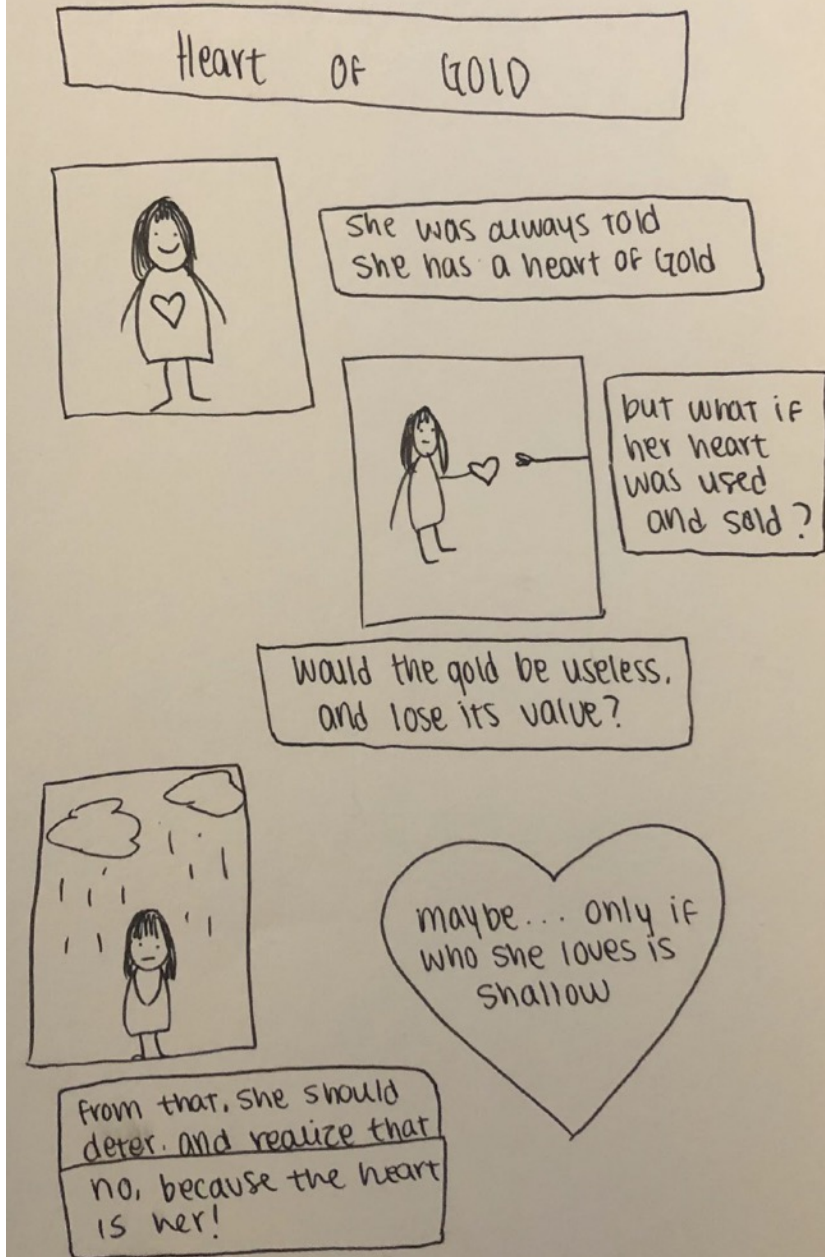 Heart OF GOLD
she was always told
she has a heart of Gold
but what if
her heart
was used
and sold?
would the gold be useless,
and lose its value?
maybe... only if
who she loves is
shallow
from that, she should
deter. and realize that
no, because the heart
is her!